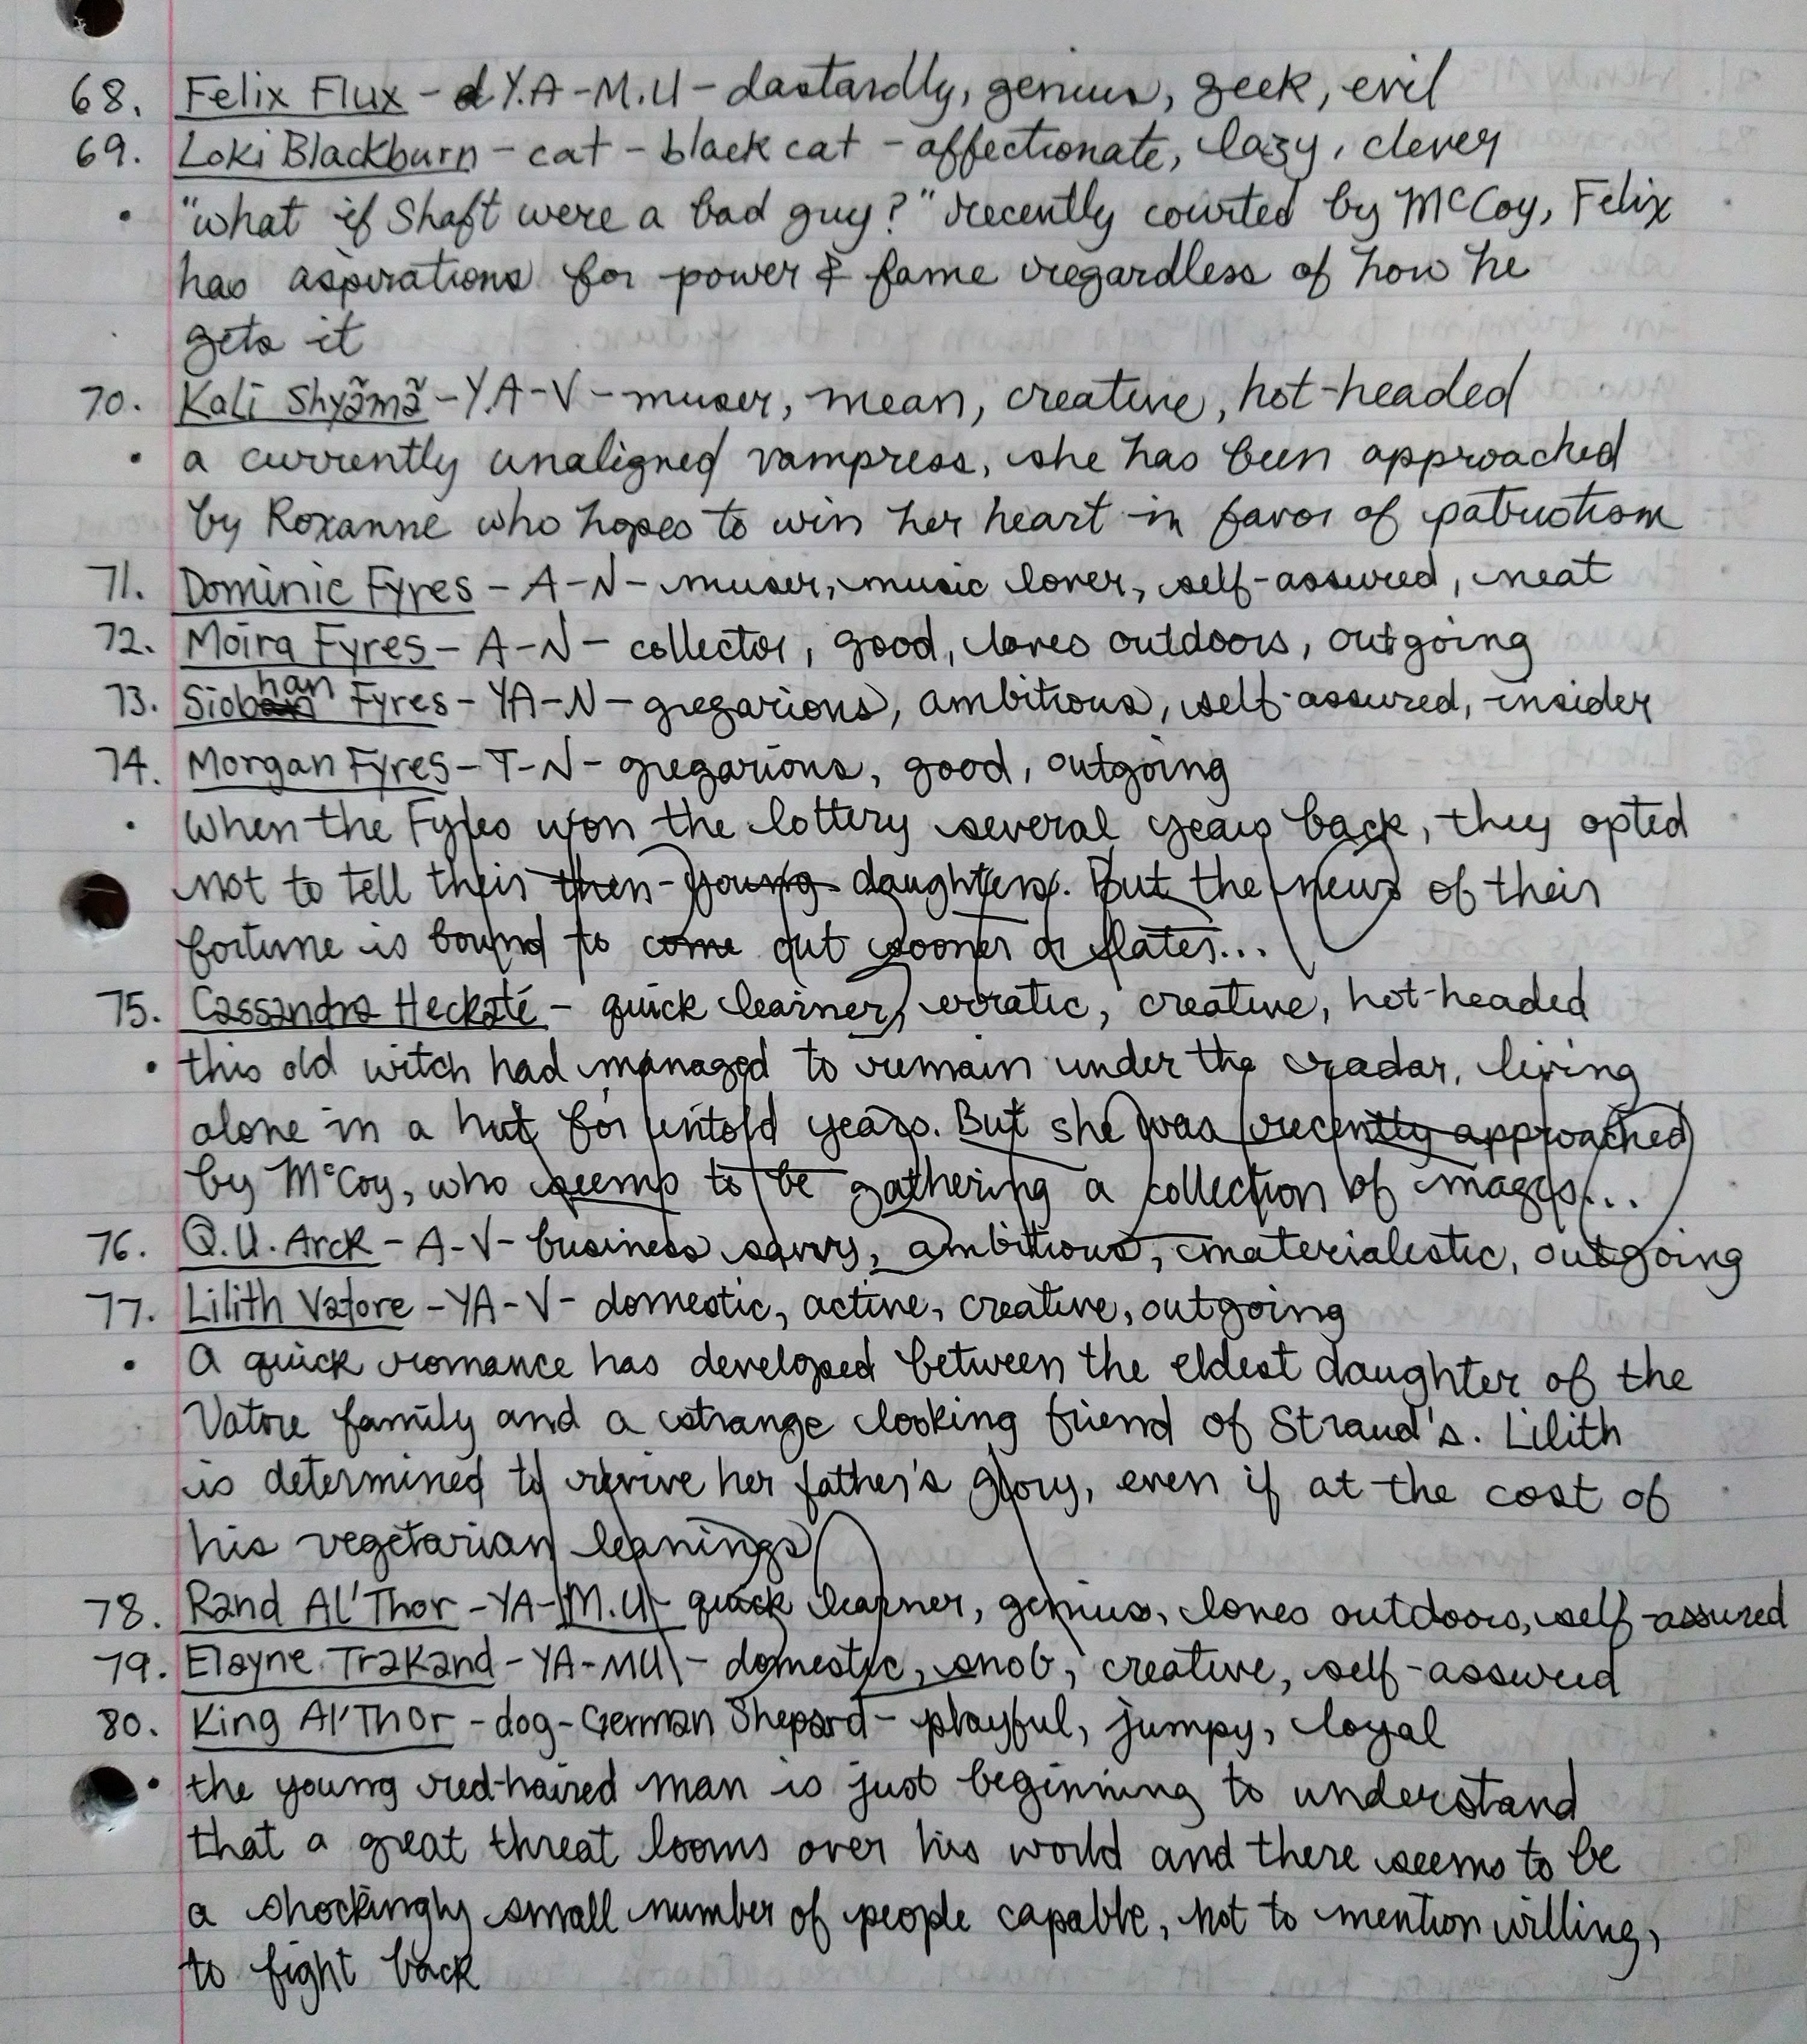 68. Felix Flux - Y.A - M.U - dastardly, genius, geek, evil
69. Loki Blackburn - cat - black cat - affectionate, lazy, clever
• "what if Shaft were a bad guy?" recently courted by McCoy, Felix
has aspirations for power & fame regardless of how he
gets it
70. Kali Shyãmã - Y.A - V - muser, mean, creative, hot-headed
• a currently unaligned vampress, she has been approached
by Roxanne who hopes to win her heart in favor of patriotism
71. Dominic Fyres - A - N - muser, music lover, self-assured, neat
72. Moira Fyres - A - N - collector, good, loves outdoors, outgoing
73. Siobhan Fyres - YA - N - gregarious, ambitious, self-assured, insider
74. Morgan Fyres - T - N - gregarious, good, outgoing
• When the Fyres won the lottery several years back, they opted
not to tell their then-young daughters. But the news of their
fortune is bound to come out sooner or later...
75. Cassandra Heckaté - quick learner, erratic, creative, hot-headed
• this old witch had managed to remain under the radar, living
alone in a hut for untold years. But she was recently approached
by McCoy, who seems to be gathering a collection of mages...
76. Q.U. Arck - A - V - business savvy, ambitious, materialistic, outgoing
77. Lilith Vatore - YA - V - domestic, active, creative, outgoing
• A quick romance has developed between the eldest daughter of the
Vatore family and a strange looking friend of Straud's. Lilith
is determined to revive her father's glory, even if at the cost of
his vegetarian leanings
78. Rand Al'Thor - YA - M.U - quick learner, genius, loves outdoors, self-assured
79. Elayne Trakand - YA - MU - domestic, snob, creative, self-assured
80. King Al'Thor - dog - German Shepard - playful, jumpy, loyal
• the young red-haired man is just beginning to understand
that a great threat looms over his world and there seems to be
a shockingly small number of people capable, not to mention willing,
to fight back